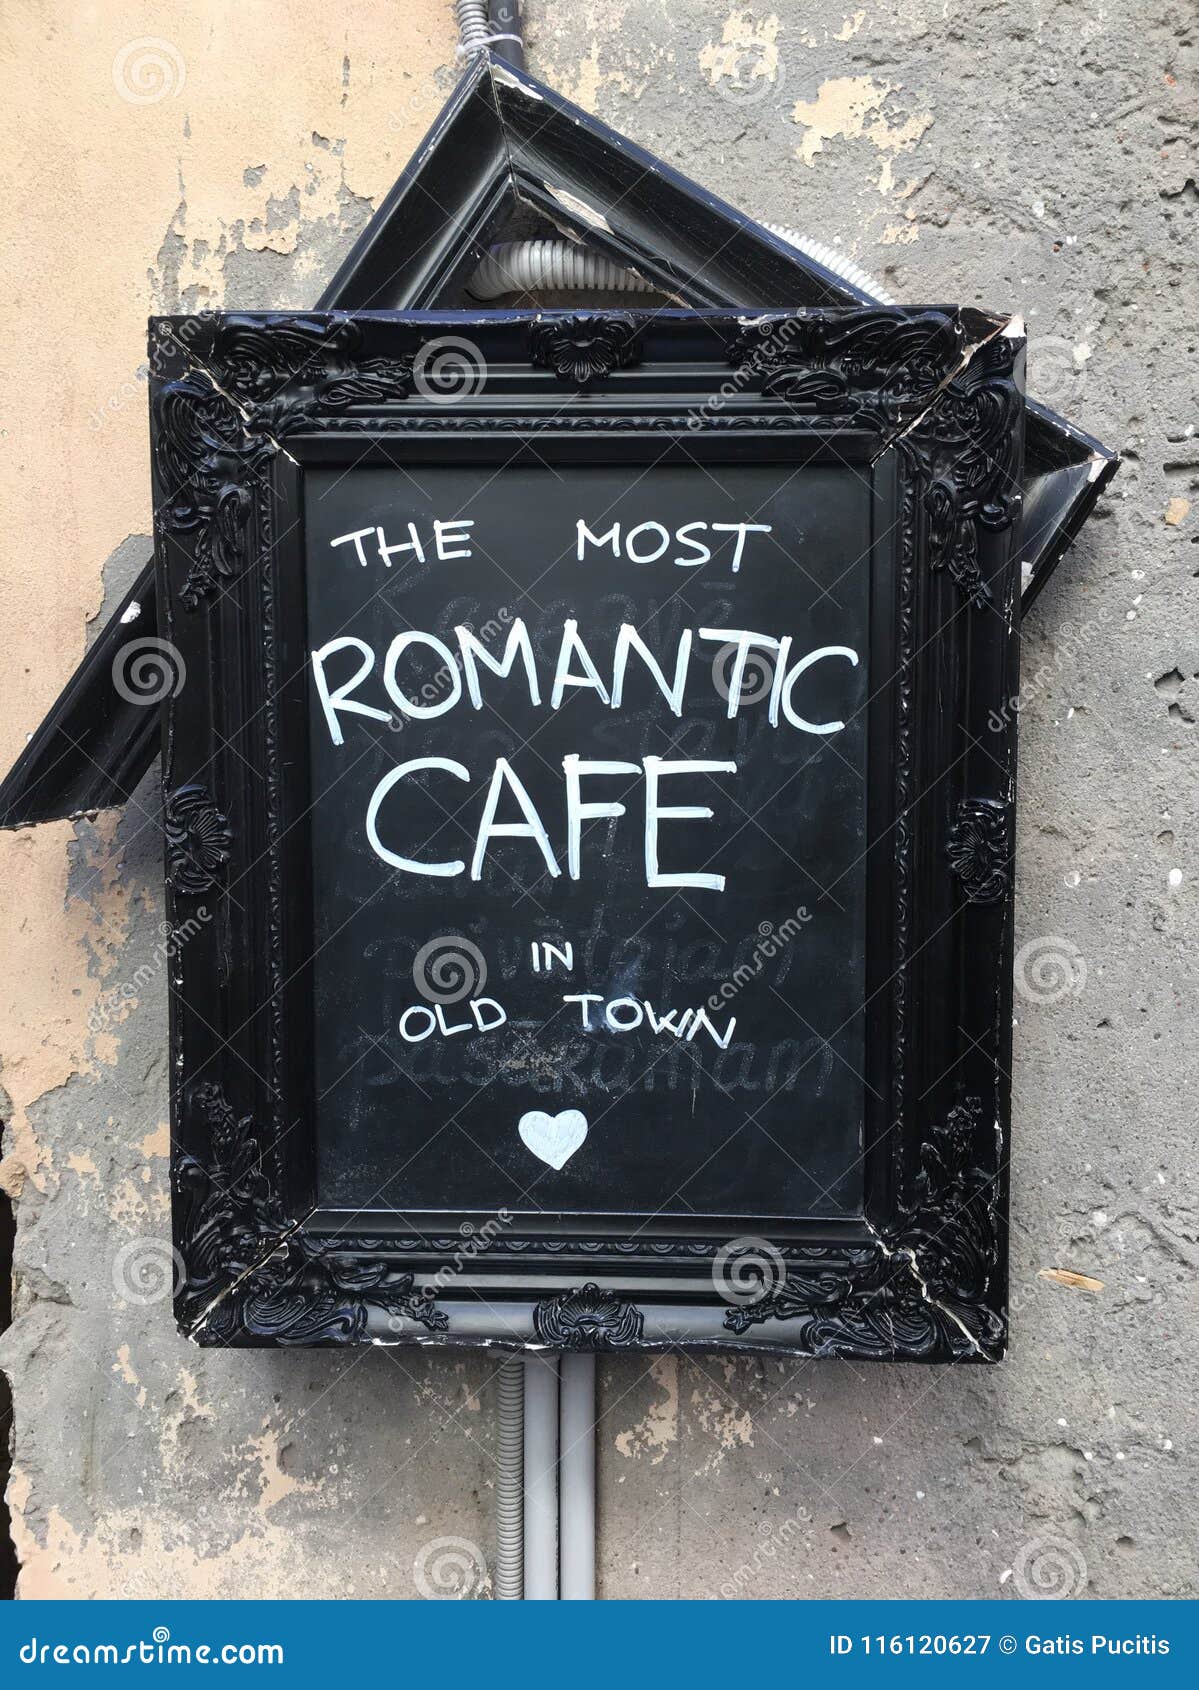 THE MOST
ROMANTIC
CAFE
IN
OLD TOWN
dreamstime.com
ID 116120627 © Gatis Pucitis